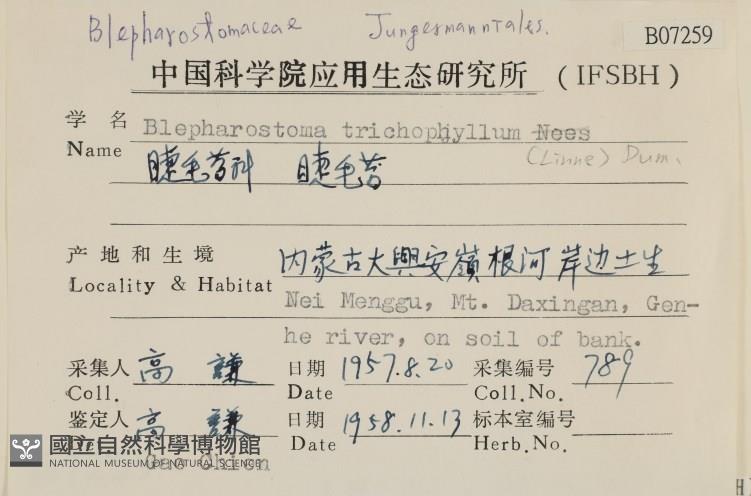 Blepharostomaceae Jungermanniales.
B07259
中国科学院应用生态研究所 (IFSBH)
学名 Blepharostoma trichophyllum Nees
Name 睫毛苔科 睫毛苔 (Linne) Dum.
产地和生境 内蒙古大興安嶺根河岸边土生
Locality & Habitat Nei Menggu, Mt. Daxingan, Gen-
he river, on soil of bank.
采集人 高謙 日期 1957.8.20 采集编号 789
Coll. Date Coll.No.
鉴定人 高謙 日期 1958.11.13 标本室编号
Date Herb.No.
國立自然科學博物館
NATIONAL MUSEUM OF NATURAL SCIENCE
H